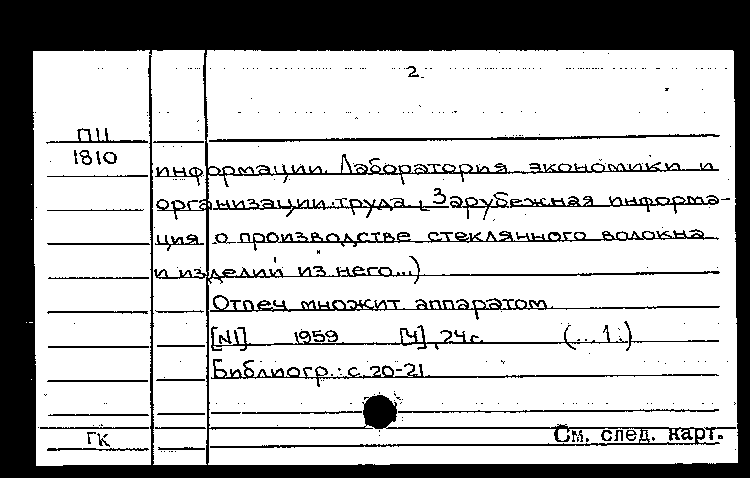 2.
П11
1810
информации. Лаборатория экономики и
организации труда. (Зарубежная информа-
ция о производстве стеклянного волокна
и изделий из него...)
Отпеч. множит. аппаратом
[N1] 1959 [4], 24 с. (...1.)
Библиогр.: с. 20-21
ГК
См. след. карт.